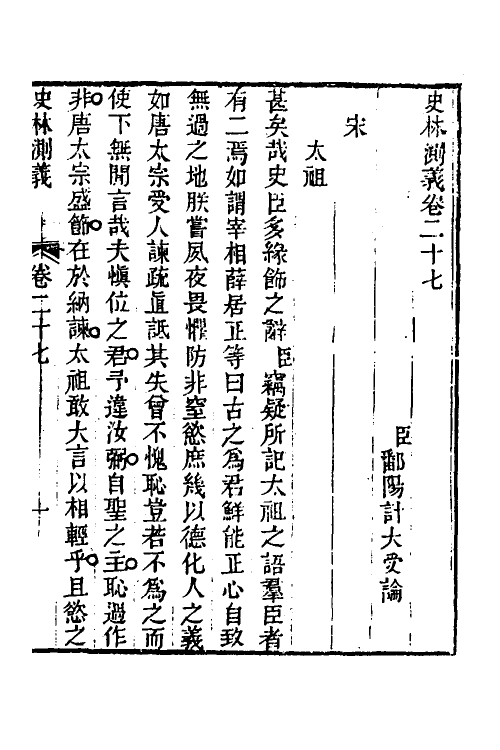 史林測義卷二十七
臣鄱陽計大受論
宋
太祖
甚矣哉史臣多緣飾之辭臣竊疑所記太祖之語羣臣者
有二焉如謂宰相薛居正等曰古之為君鮮能正心自致
無過之地朕嘗夙夜畏懼防非窒慾庶幾以德化人之義
如唐太宗受人諫疏直詆其失曾不愧恥豈若不為之而
使下無閒言哉夫愼位之君予違汝弼自聖之主恥過作
非唐太宗盛節在於納諫太祖敢大言以相輕乎且慾之
史林測義
卷二十七
十